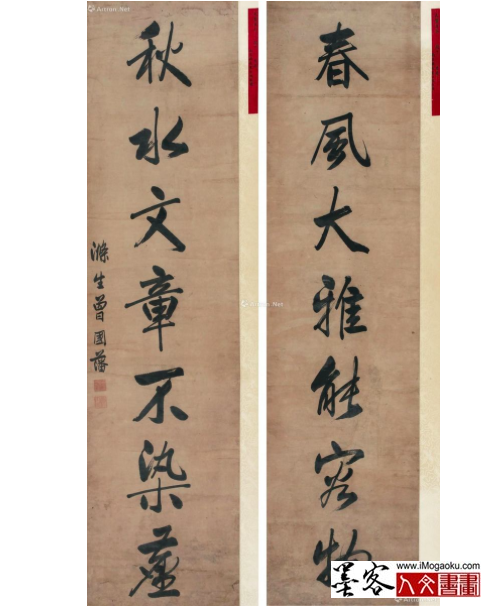 春風大雅能容物
秋水文章不染塵
滌生曾國藩
Artron.Net
Artron.Net
墨客
www.iMogaoku.com
人文書畫